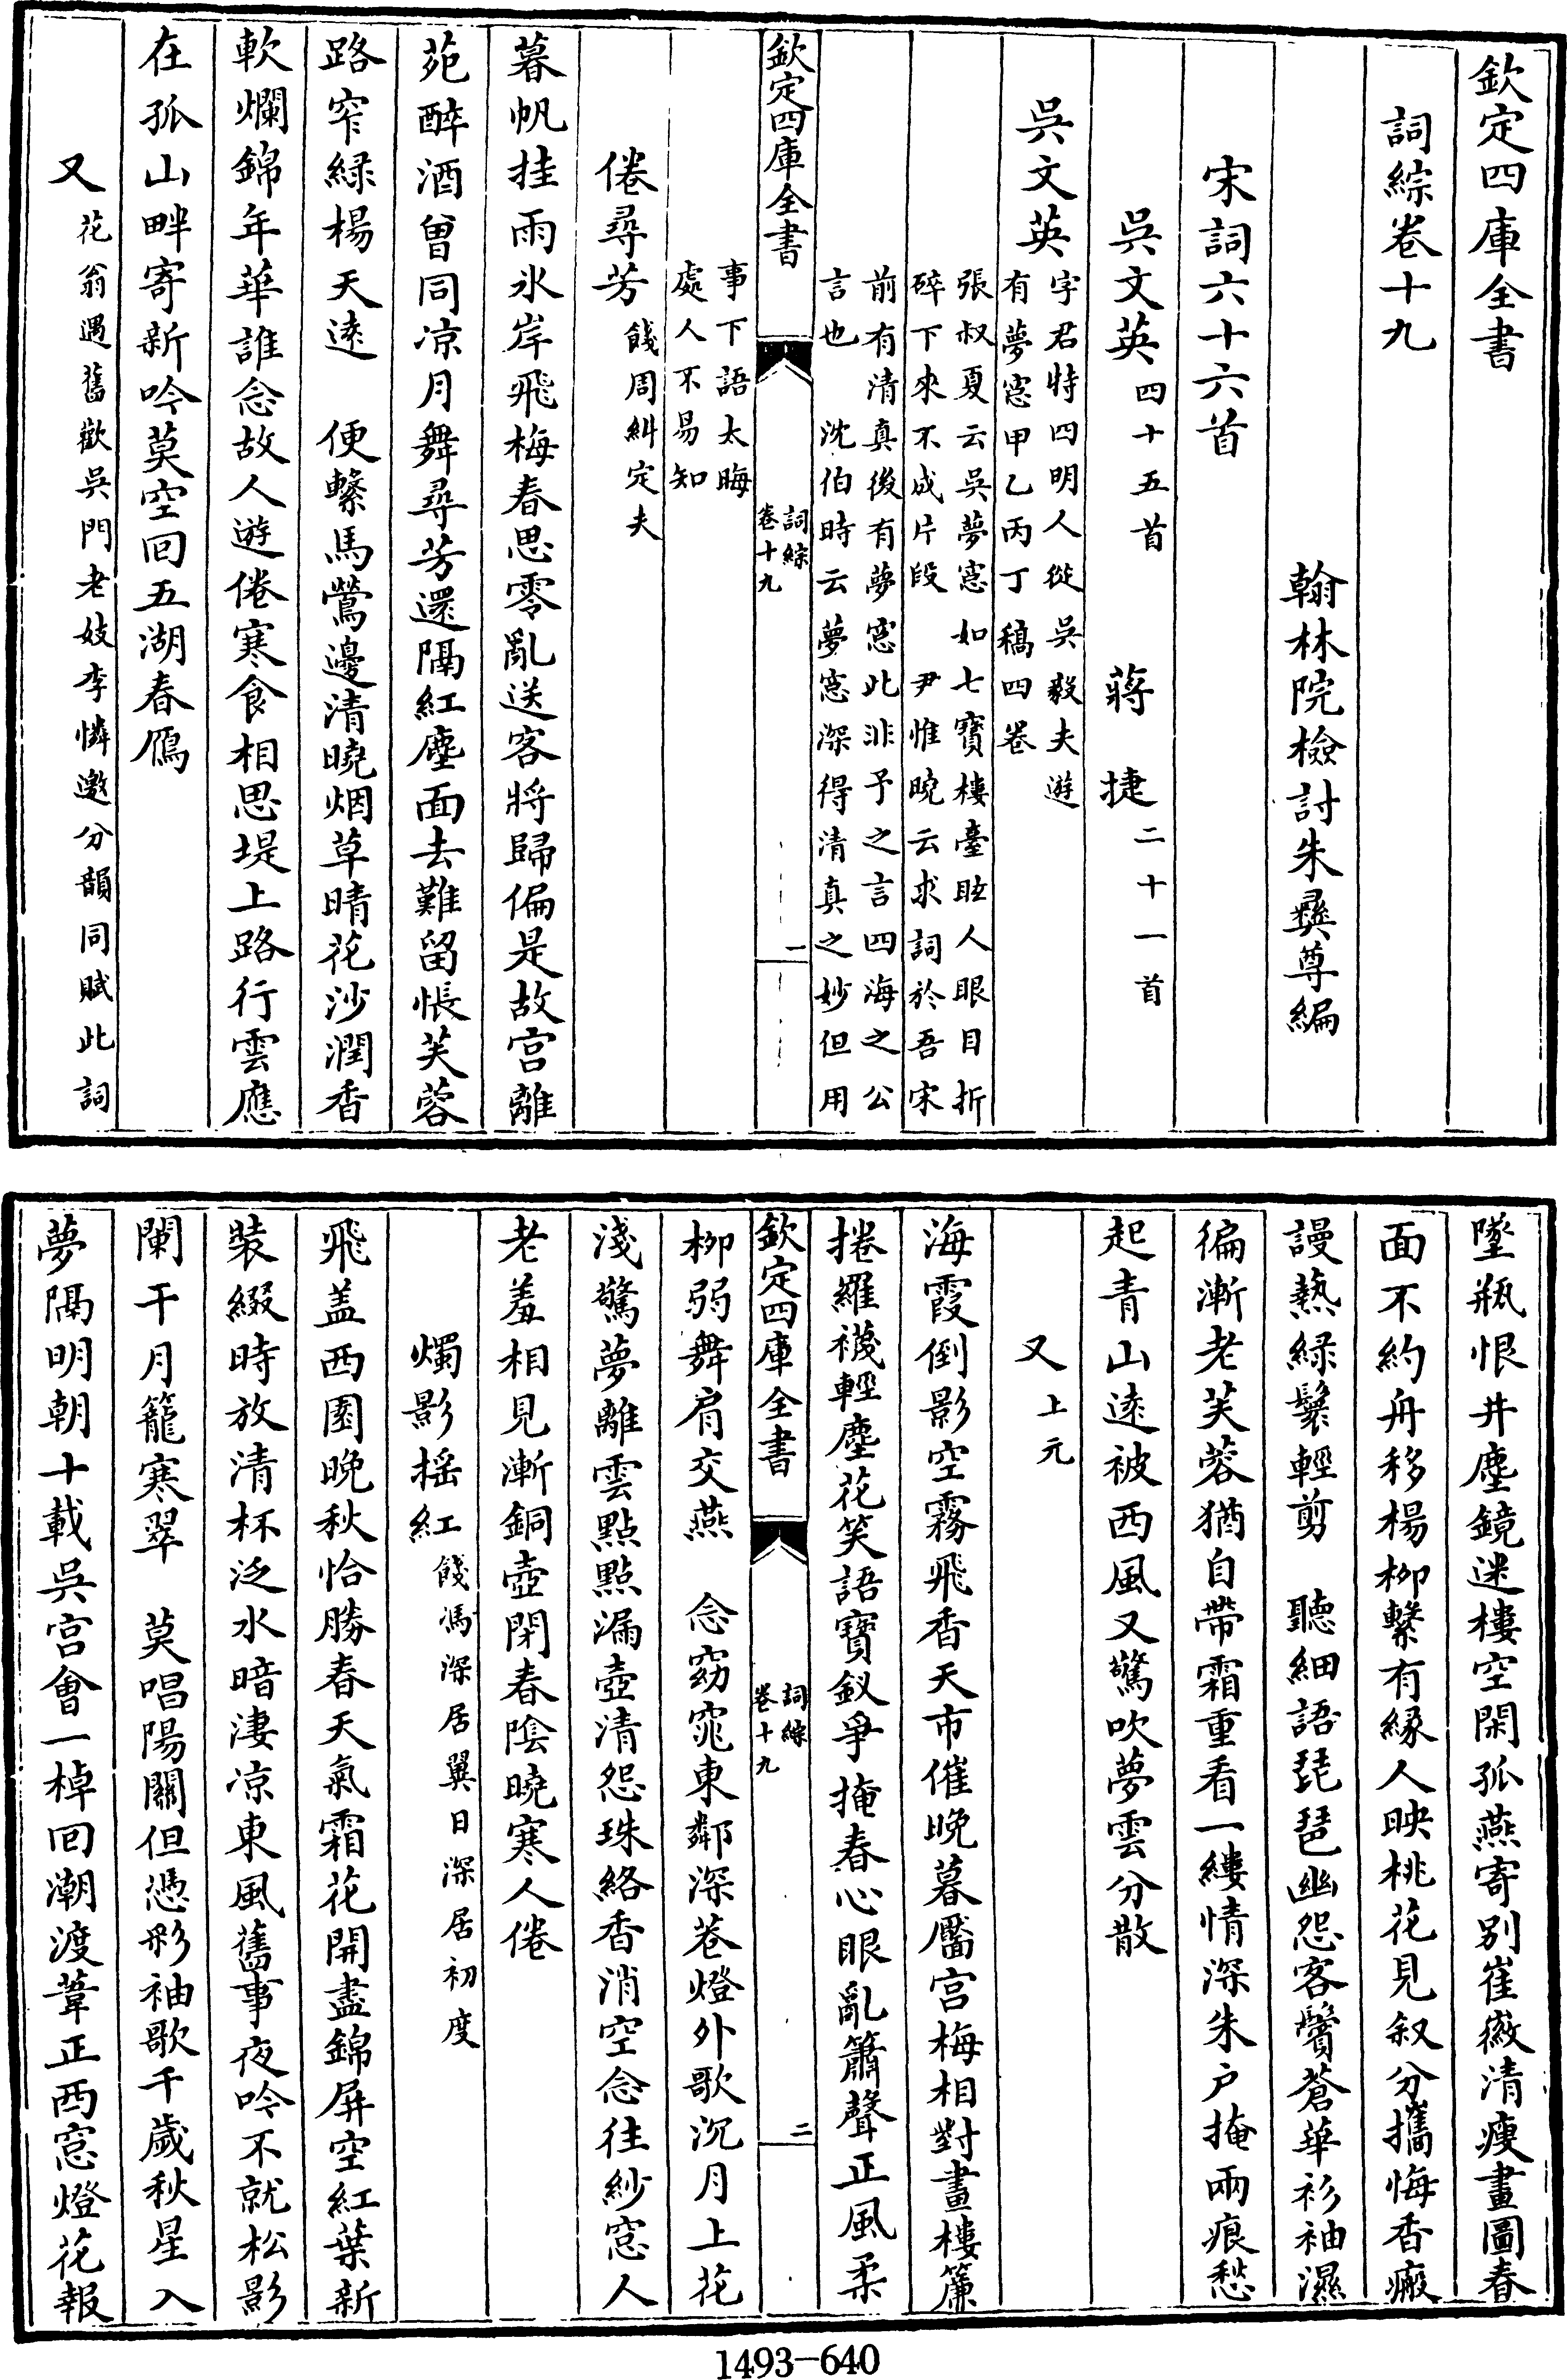 欽定四庫全書
詞綜卷十九
翰林院檢討朱彝尊編
宋詞六十六首
吳文英四十五首　蔣捷二十一首
吳文英字君特四明人從吳毅夫遊
有夢窓甲乙丙丁稿四卷
張叔夏云吳夢窓如七寳樓臺眩人眼目折
碎下來不成片段　尹惟曉云求詞於吾宋
前有清真後有夢窓此非予之言四海之公
言也　沈伯時云夢窓深得清真之妙但用
欽定四庫全書
詞綜
卷十九
一
事下語太晦
處人不易知
倦尋芳餞周糾定夫
暮帆挂雨氷岸飛梅春思零亂送客將歸偏是故宫離
苑醉酒曾同凉月舞尋芳還隔紅塵面去難留悵芙蓉
路窄緑楊天逺　便繫馬鶯邊清曉烟草晴花沙潤香
軟爛錦年華誰念故人遊倦寒食相思堤上路行雲應
在孤山畔寄新吟莫空回五湖春鴈
又花翁遇舊歡吳門老妓李憐邀分韻同賦此詞
墜瓶恨井塵鏡迷樓空閑孤燕寄别崔徽清瘦畫圖春
面不約舟移楊柳繫有縁人映桃花見叙分攜悔香瘢
謾熱緑鬟輕剪　聽細語琵琶幽怨客鬢蒼華衫袖濕
徧漸老芙蓉猶自帶霜重看一縷情深朱户掩兩痕愁
起青山逺被西風又驚吹夢雲分散
又上元
海霞倒影空霧飛香天市催晚暮靨宫梅相對畫樓簾
捲羅襪輕塵花笑語寳釵爭掩春心眼亂簫聲正風柔
欽定四庫全書
詞綜
卷十九
二
柳弱舞肩交燕　念窈窕東鄰深巷燈外歌沉月上花
淺驚夢離雲點點漏壺清怨珠絡香消空念往紗窓人
老羞相見漸銅壺閉春陰曉寒人倦
燭影揺紅餞馮深居翼日深居初度
飛盖西園晚秋恰勝春天氣霜花開盡錦屏空紅葉新
裝綴時放清杯泛水暗淒凉東風舊事夜吟不就松影
闌干月籠寒翠　莫唱陽關但憑彩袖歌千歲秋星入
夢隔明朝十載吳宫會一棹回潮渡葦正西窓燈花報
1493-640